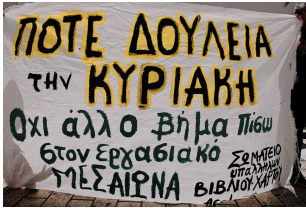 ΠΟΤΕ ΔΟΥΛΕΙΑ
την ΚΥΡΙΑΚΗ
Όχι άλλο βήμα πίσω
στον εργασιακό
ΜΕΣΑΙΩΝΑ
ΣΩΜΑΤΕΙΟ
ΥΠΑΛΛΗΛΩΝ
ΒΙΒΛΙΟΥ-ΧΑΡΤΟΥ